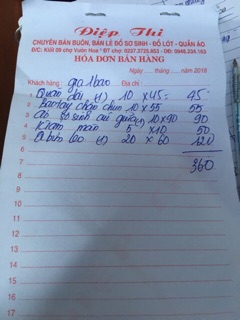 Điệp Thi
CHUYÊN BÁN BUÔN, BÁN LẺ ĐỒ SƠ SINH - ĐỒ LÓT - QUẦN ÁO
Đ/C: Kiốt 09 chợ Vườn Hoa * ĐT chợ: 0237.3725.802 - DĐ: 0948.254.163
HÓA ĐƠN BÁN HÀNG
Ngày ..... tháng ..... năm 2018
Khách hàng: gia 1 bao Địa chỉ:
1 Quần dài (1) 10 x 45 = 45
2 Bao tay chân 10 x 55 55
3 áo sơ sinh (1) 10 x 90 90
4 Khăn 5 x 10 50
5 20 x 60 120
6
7 360
8
9
10
11
12
13
14
15
16
17